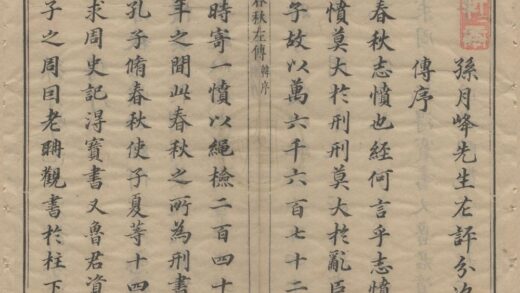 孫月峰先生左評分次
傳序
春秋志憤也經何言乎志憤
憤莫大於刑刑莫大於亂臣
子故以萬六千六百七十二
春秋左傳 韓序
時寄一憤以繩檢二百四十
年之間此春秋之所為刑書
孔子脩春秋使子夏等十四
求周史記得寶書又魯君資
子之周回老聃觀書於柱下